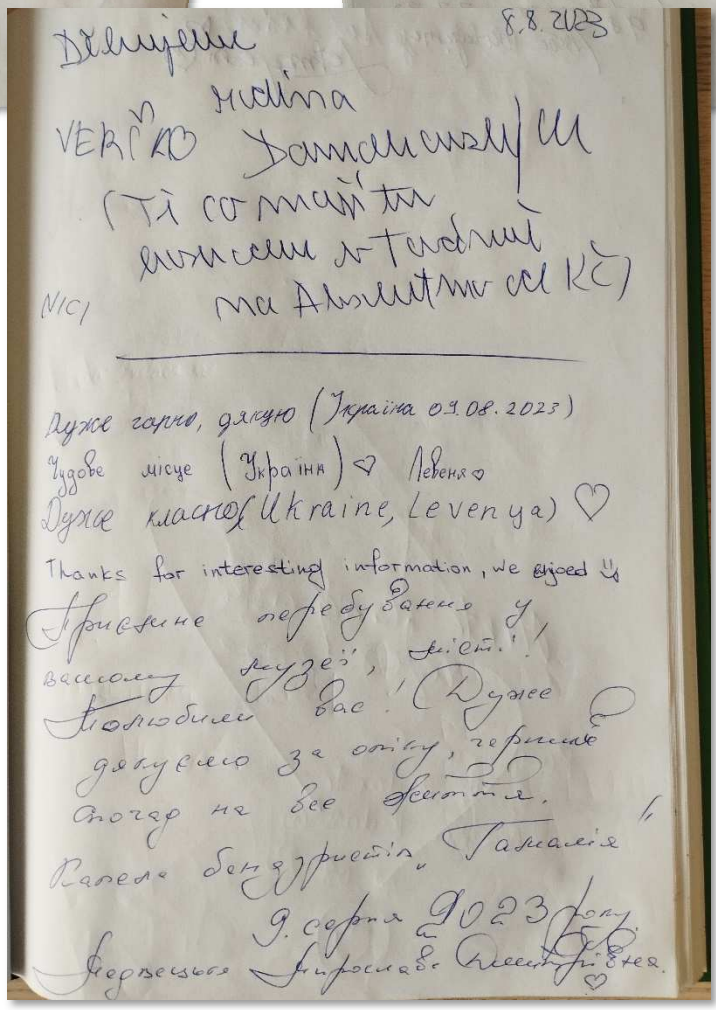 8.8.2023
Děkujeme
rodina
VERČRO
(Ti co mají tu
na Absolutno od KČ)
NIC)
Дуже гарно, дякую (Україна 09.08.2023)
Чудове місце (Україна) ♡ Левеня ♡
Дуже класно( Ukraine, Levenya) ♡
Thanks for interesting information, we enjoed
Приємне перебування у
вашому музеї, місті!
Полюбили вас! Дуже
дякуємо за опіку,
спогад на все життя.
Капела бандуристів „
9. серпня 2023 року
Мирослава Дмитрівна. ♡